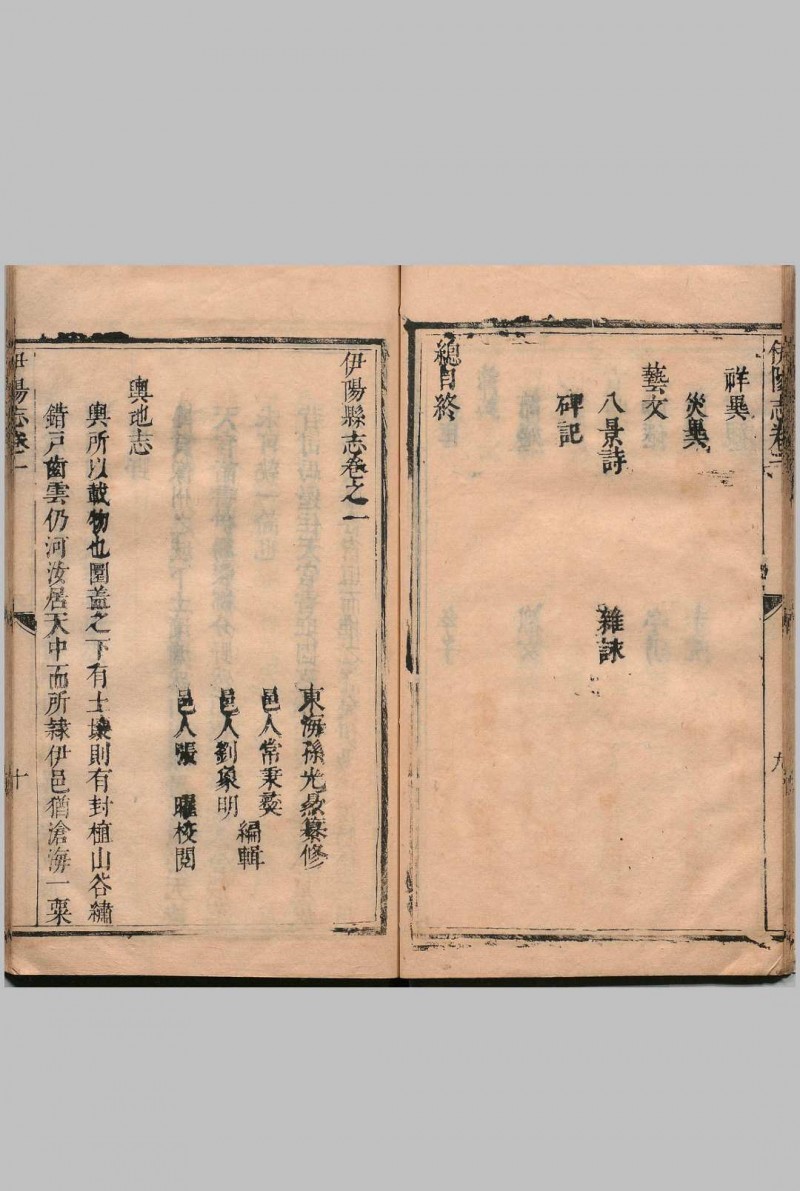 祥異
災異
藝文
八景詩 雜詠
碑記
總目終
九
伊陽縣志卷之一
東海孫光纂修
邑人常秉
邑人劉象明
編輯
邑人張 曜校閱
輿地志
輿所以載物也圜蓋之下有土壤則有封植山谷繡
錯戸齒雲仍河汝居天中而所隸伊邑猶滄海一粟
十